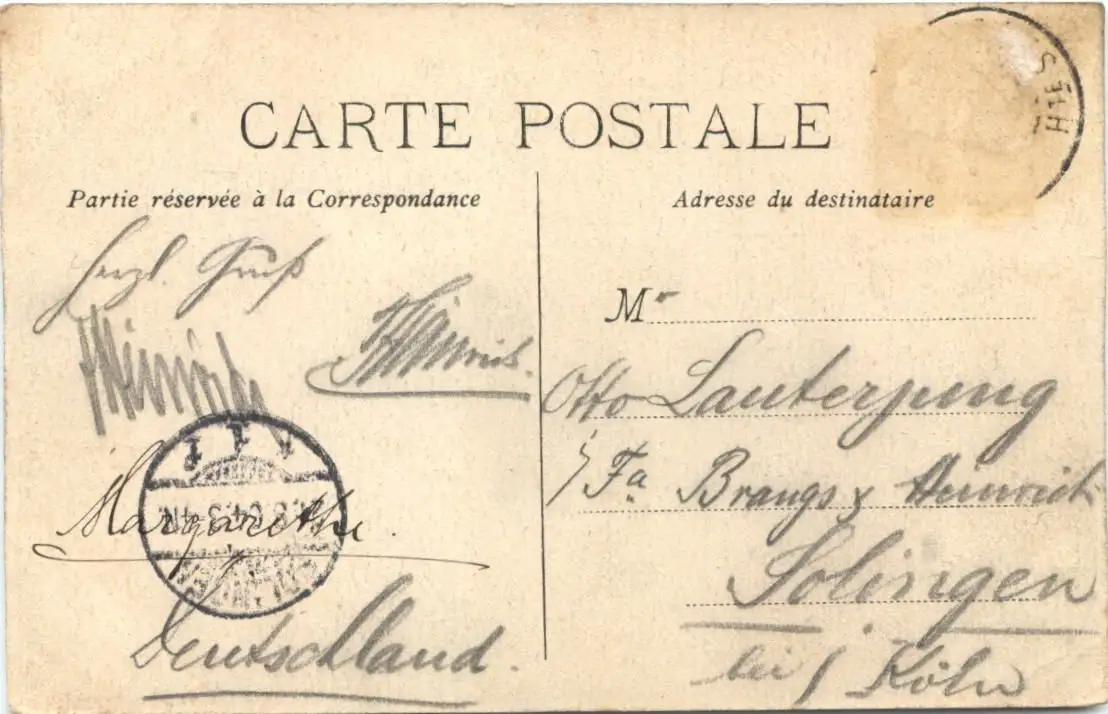 CARTE POSTALE
Partie réservée à la Correspondance
Adresse du destinataire
Herzl. Gruß
Heinrich
Margarethe.
Deutschland.
Mr
Otto Lauterjung
Fa Brangs & Heinrich
Solingen
bei Köln